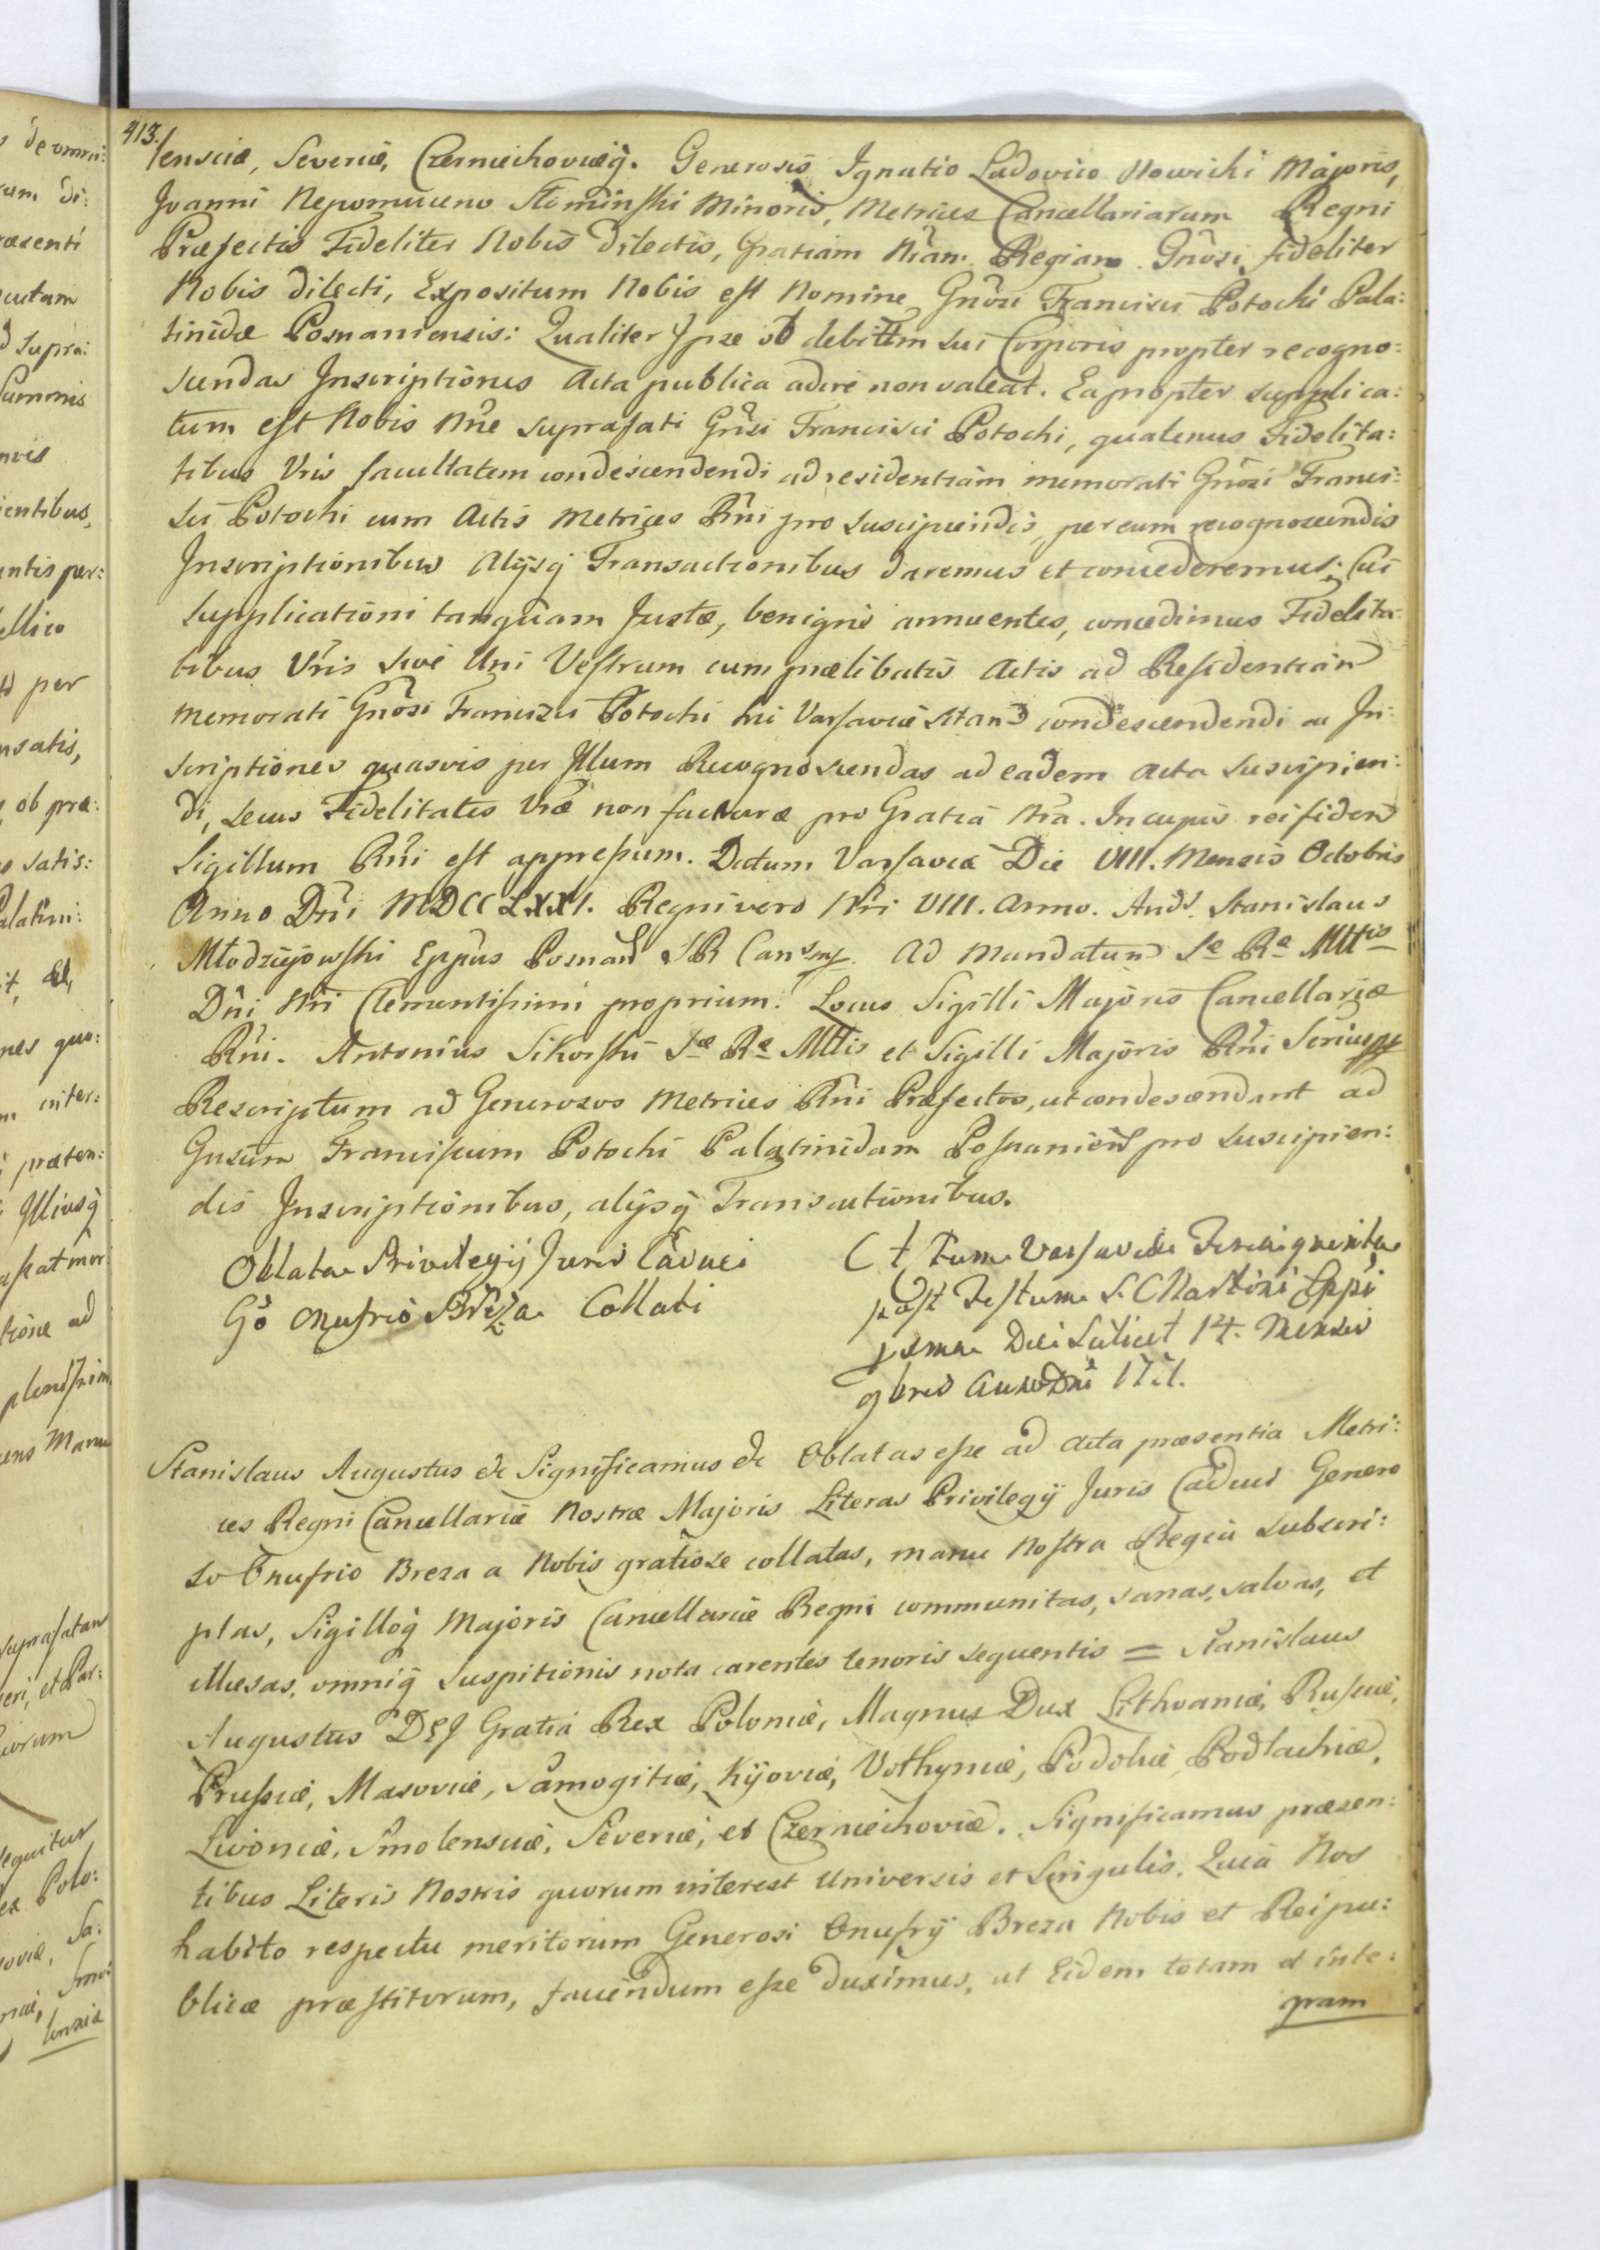 413.
lensciæ, Severiæ, Czerniechoviæq̃. Generosis Ignatio Ludovico Nowicki Majoris,
Joanni Nepomuceno Słominski Minoris, Metrices Cancellariarum Regni
Præfectis Fideliter Nobis Dilectis, Gratiam Nr̃am Regiam. Gnõsi fideliter
Nobis Dilecti, Expositum Nobis est Nomine Gnõsi Francisci Potocki Pala:
tinidæ Posnaniensis: Qualiter Ipse ob debittm sui Corporis propter recogno:
scendas Inscriptiones Acta publica adire non valeat. Eapropter supplica:
tum est Nobis Nñe suprafati Gnõsi Francisci Potocki, quatenus Fidelita:
tibus Vr̃is facultatem condescendendi ad residentiam memorati Gnõsi Franci:
sci Potocki cum Actis Metrices Rñi pro suscipiendis, per eum recognoscendis
Inscriptionibus Alijsq̃ Transactionibus daremus et concederemus: Cui
supplicationi tanquam Justæ, benigne annuentes, concedimus Fidelita:
tibus Vr̃is sive Uni Vestrum cum prælibatis Actis ad Residentiam
memorati Gnõsi Francisci Potocki hic Varsaviæ stan͠d condescendendi ac In:
scriptiones quasvis per Illum Recognoscendas ad eadem Acta suscipien:
di, secus Fidelitates Vr̃æ non facturæ pro Gratia Nr̃a. In cujus rei fidem
Sigillum Rñi est appressum. Datum Varsaviæ Die VIII. Mensis Octobris
Anno Dñi MDCCLXXI. Regni vero Nr̃i VIII. Anno. Ands. Stanislaus
Młodziejowski Eppus Posnan SR Canc. Ad Mandatum Sæ Ræ Mttis
Dñi Nr̃i Clementissimi proprium. Locus Sigilli Majoris Cancellariæ
Rñi. Antonius Sikorski Sæ Ræ Mttis et Sigilli Majoris Rñi Secrius
Rescriptum ad Generosos Metrices Rñi Præfectos, ut condescendant ad
Gnsum Franciscum Potocki Palatinidam Posnanien͠s pro suscipien:
dis Inscriptionibus, alijsq̃ Transactionibus.
Oblata Privilegij Juris Caduci
Gõ Onufrio Breza Collati
Ctum Varsaviæ Feria quinta
post Festum S. Martini Eppi
xima Die Scilicet 14. Mensis
9bris Anno Dñi 1771.
Stanislaus Augustus &c Significamus &c Oblatas esse ad Acta præsentia Metri:
ces Regni Cancellariæ Nostræ Majoris Literas Privilegij Juris Caduci Genero
so Onufrio Breza a Nobis gratiose collatas, manu Nostra Regia subscri:
ptas, Sigilloq̃ Majoris Cancellariæ Regni communitas, sanas, salvas, et
illæsas, omniq̃ suspitionis nota carentes tenoris sequentis = Stanislaus
Augustus DEI Gratia Rex Poloniæ, Magnus Dux Lithvaniæ, Russiæ,
Prussiæ, Masoviæ, Samogitiæ, Kijoviæ, Volhyniæ, Podoliæ, Podlachiæ,
Livoniæ, Smolensciæ, Severiæ, et Czerniechoviæ. Significamus præsen:
tibus Literis Nostris quorum interest Universis et Singulis. Quia Nos
habito respectu meritorum Generosi Onufrij Breza Nobis et Reipu:
blicæ præstitorum, faciendum esse duximus, ut Eidem totam et inte:
gram